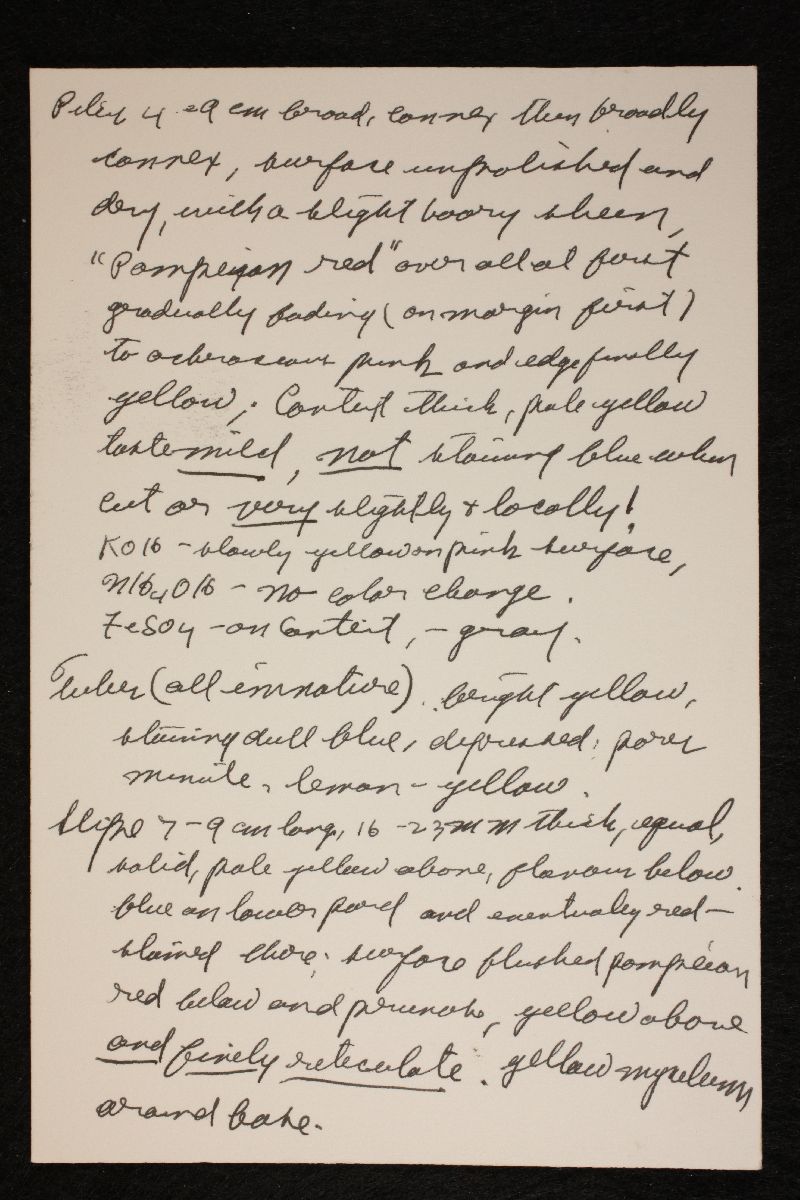 Pileus 4-9 cm broad, convex then broadly
convex, surface unpolished and
dry, with a slight hoary sheen,
"Pompeian red" over all at first
gradually fading (on margin first)
to ochraceous pink and edge finally
yellow; Context thick, pale yellow
taste mild, not staining blue when
cut or very slightly & locally!
KOH - slowly yellow on pink surface,
NH4OH - no color change.
FeSO4 - on Context, - gray.
Tubes (all immature). bright yellow,
staining dull blue, depressed; pores
minute, lemon-yellow.
Stipe 7-9 cm long, 16-23 mm thick, equal,
solid, pale yellow above, flavous below
blue on lower part and eventually red-
stained there; surface flushed pompeian
red below and pruinose, yellow above
and finely reticulate. yellow mycelium
around base.